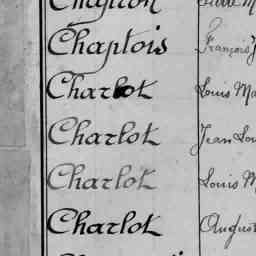 Chaplois François
Charlot Louis Ma
Charlot Jean Lou
Charlot Louis M
Charlot August